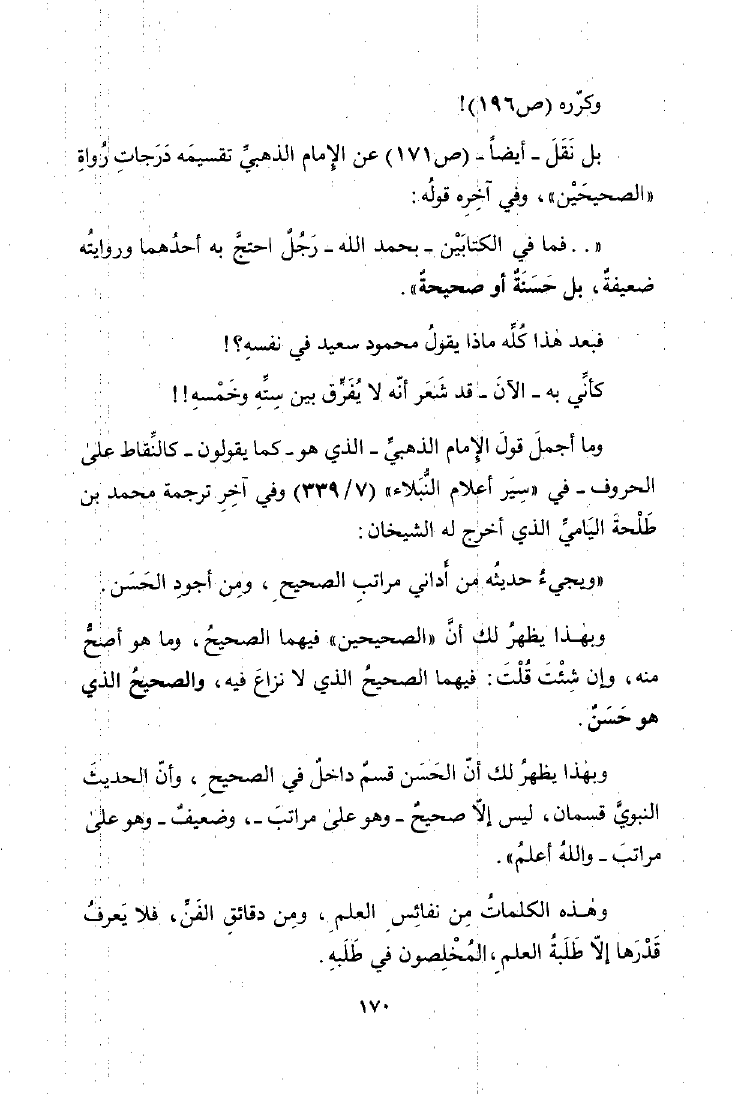 وكرّره (ص١٩٦)!
بل نَقَلَ ـ أيضاً ـ (ص١٧١) عن الإمام الذهبيِّ تقسيمَه دَرَجاتِ رُواةِ
«الصحيحَيْن»، وفي آخِرِه قولُه:
«. . فما في الكتابَيْن ـ بحمد الله ـ رَجُلٌ احتجَّ به أحدُهما وروايتُه
ضعيفةٌ، بل حَسَنَةٌ أو صحيحةٌ».
فبعد هٰذا كُلِّه ماذا يقولُ محمود سعيد في نفسِهِ؟!
كأنِّي به ـ الآنَ ـ قد شَعَر أنّه لا يُفَرِّق بين سِتِّهِ وخَمْسهِ!!
وما أجملَ قولَ الإمام الذهبيِّ ـ الذي هو ـ كما يقولون ـ كالنِّقاط علىٰ
الحروف ـ في «سِيَر أعلام النُّبلاء» (٧/ ٣٣٩) وفي آخِرِ ترجمة محمد بن
طَلْحةَ اليَاميِّ الذي أخرج له الشيخان:
«ويجيءُ حديثُه مِن أَداني مراتبِ الصحيحِ، ومِن أجودِ الحَسَن.
وبهٰـذا يظهرُ لك أنَّ «الصحيحين» فيهما الصحيحُ، وما هو أصحُّ
منه، وإن شِئْتَ قُلْتَ: فيهما الصحيحُ الذي لا نزاعَ فيه، والصحيحُ الذي
هو حَسَنٌ.
وبهٰذا يظهرُ لك أنّ الحَسَن قسمٌ داخلٌ في الصحيحِ، وأنّ الحديثَ
النبويَّ قسمان، ليس إلّا صحيحٌ ـ وهو علىٰ مراتبَ ـ، وضعيفٌ ـ وهو علىٰ
مراتبَ ـ واللهُ أعلمُ».
وهٰـذه الكلماتُ مِن نفائِسِ العلمِ، ومِن دقائقِ الفَنِّ، فلا يَعرفُ
قَدْرَها إلّا طَلَبةُ العلمِ، المُخْلِصون في طَلَبهِ.
١٧٠